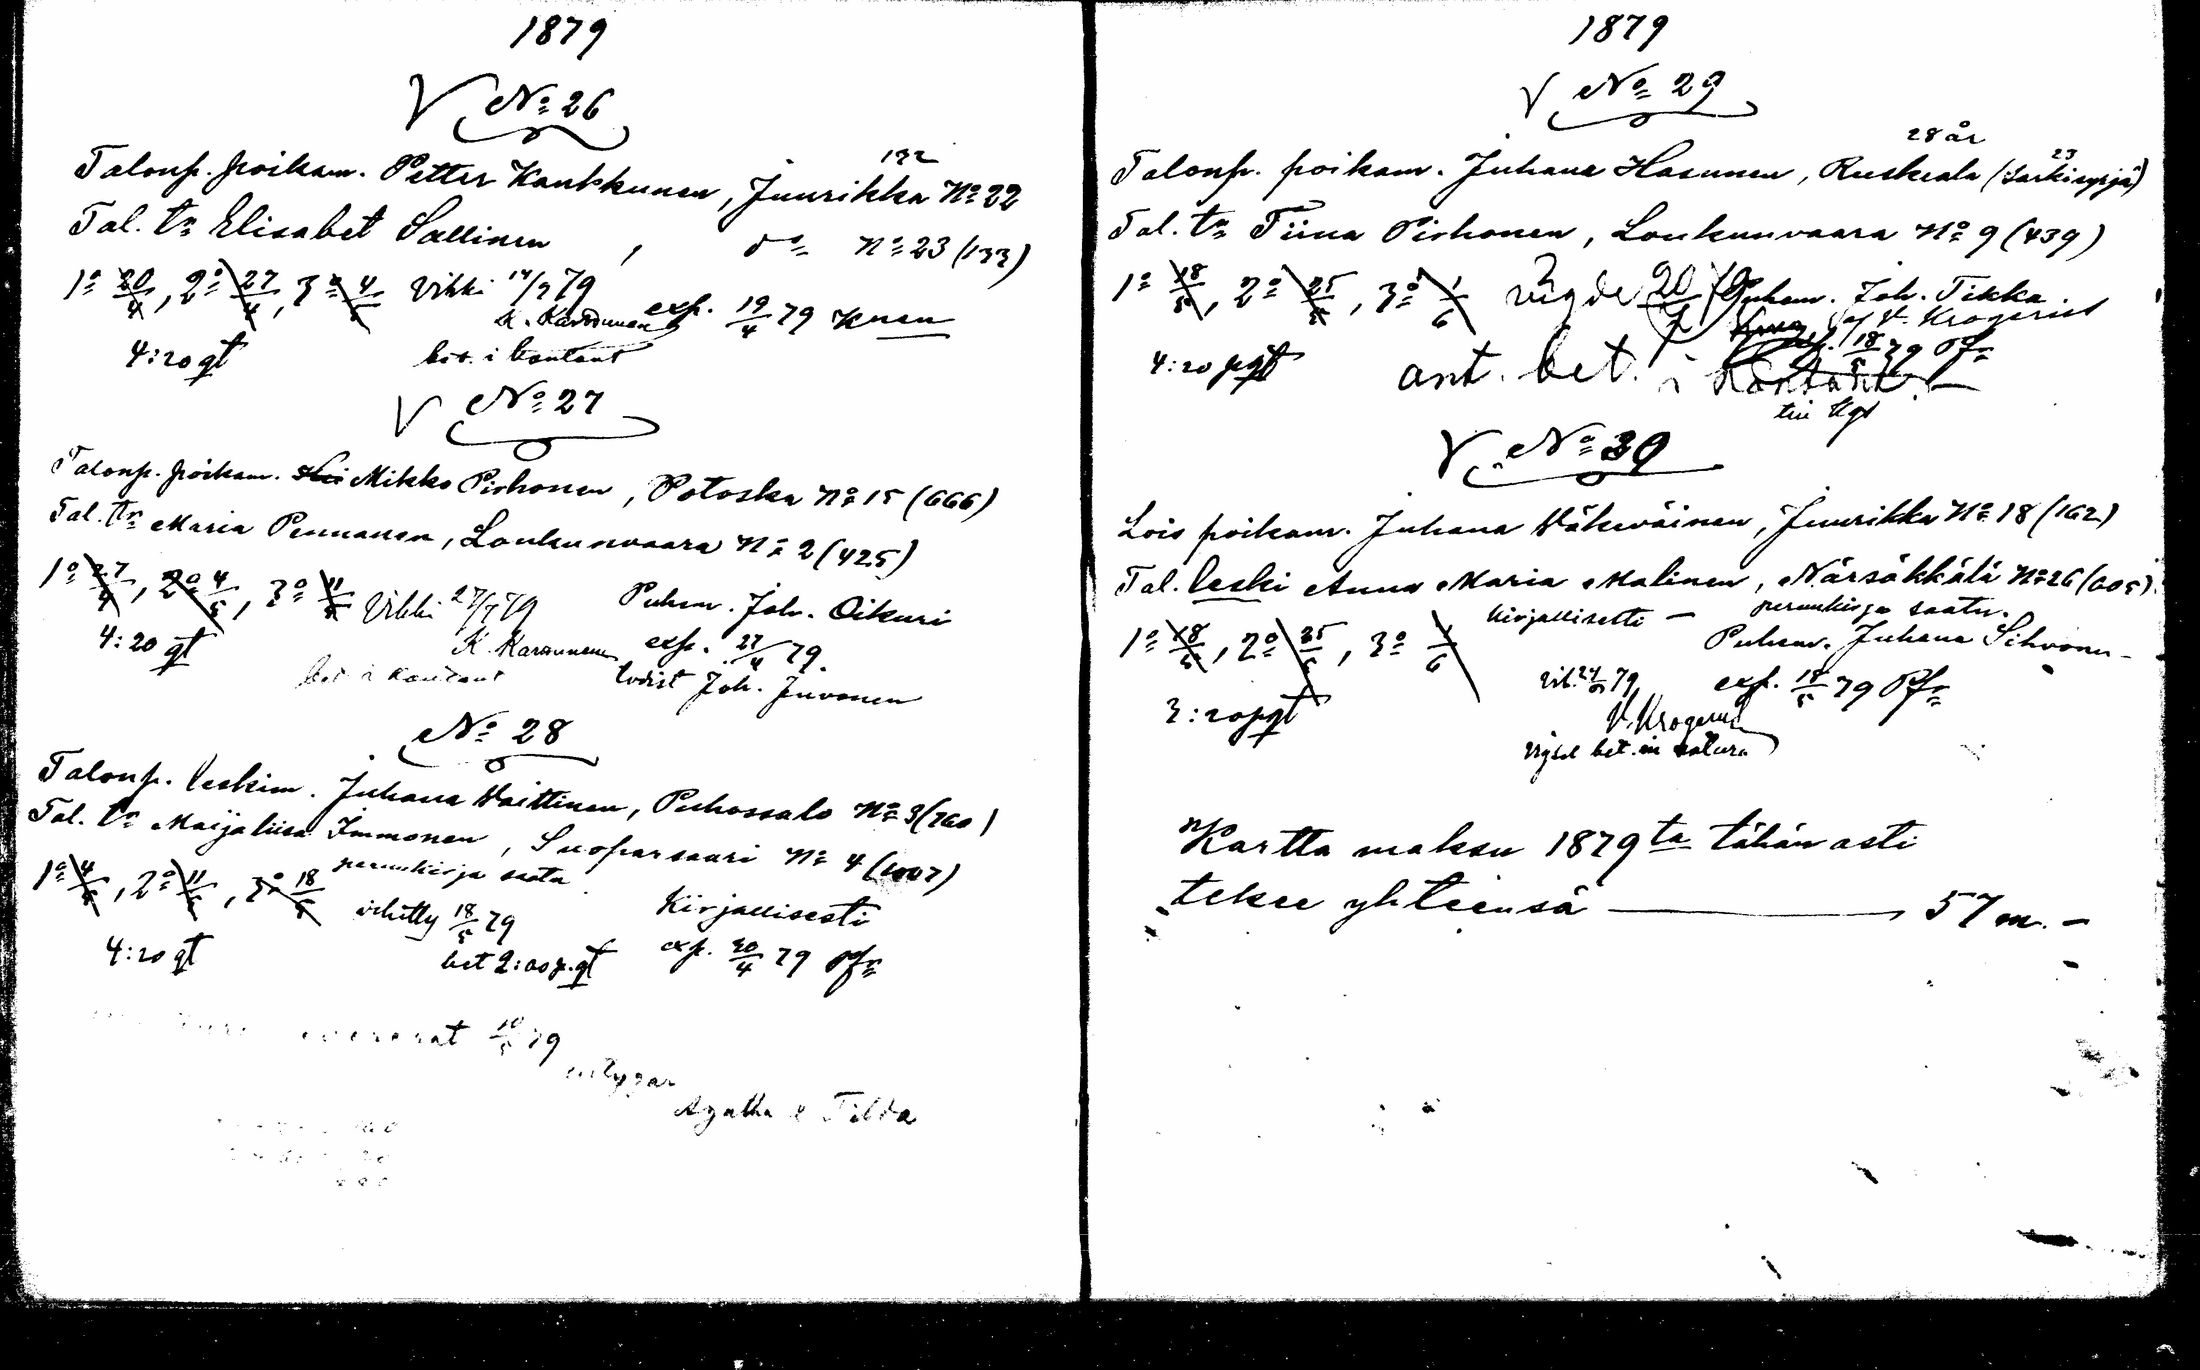 1879
V No 26
132
Talonp. poikam. Petter Kankkunen, Juurikka No 22
Tal. tr Elisabet Sallinen, do No 23 (133)
1o 20/4, 2o 27/4, 3o 4/5 Vihki 14/7 79
K. Karvonen exp. 19/4 79 Knen
4:20 gt bet. i kontant
V No 27
Talonp. poikam. Mikko Pirhonen, Potoska No 15 (666)
Tal. tr Maria Pennanen, Loukunvaara No 2 (425)
1o 27/4, 2o 4/5, 3o 11/5 Vihki 27/7 79 Puhem. Joh. Oikuri
4:20 gt K. Karvonen exp. 27/4 79.
bet i kontant todist Joh. Juvonen
No 28
Talonp. leskim. Juhana Waittinen, Puhossalo No 3 (760)
Tal. tr Maijaliisa Immonen, Suoparsaari No 4 (1007)
perunkirja saatu
1o 4/5, 2o 11/5, 3o 18/5 vihitty 18/5 79 Kirjallisesti
4:20 gt bet 2:00 p. gt exp. 30/4 79 Pfr
10/5 79
Agatha & Tilda
1879
V No 29
28 år
23
Talonp. poikam. Juhana Hasunen, Ruskeala (Särkisyrjä)
Tal. tr Tiina Pirhonen, Loukunvaara No 9 (439)
1o 18/5, 2o 25/5, 3o 1/6 vigde 20/7 79 Puhem. Joh. Tikka
af V. Krogerus
4:20 pgt exp. 18/5 79 Pfr
ant. bet. i kontant.
V No 30
Lois poikam. Juhana Wäkeväinen, Juurikka No 18 (162)
Tal. leski Anna Maria Malinen, Närsäkkälä No 26 (605)
Kirjallisetti — perunkirja saatu.
1o 18/5, 2o 25/5, 3o 1/6 Puhem. Juhana Sihvonen
3:20 pgt vih. 24/8 79 exp. 18/5 79 Pfr
V. Krogerus
vigsel bet. in natura
Kartta maksu 1879 ta tähän asti
tekee yhteensä — 57 m. —